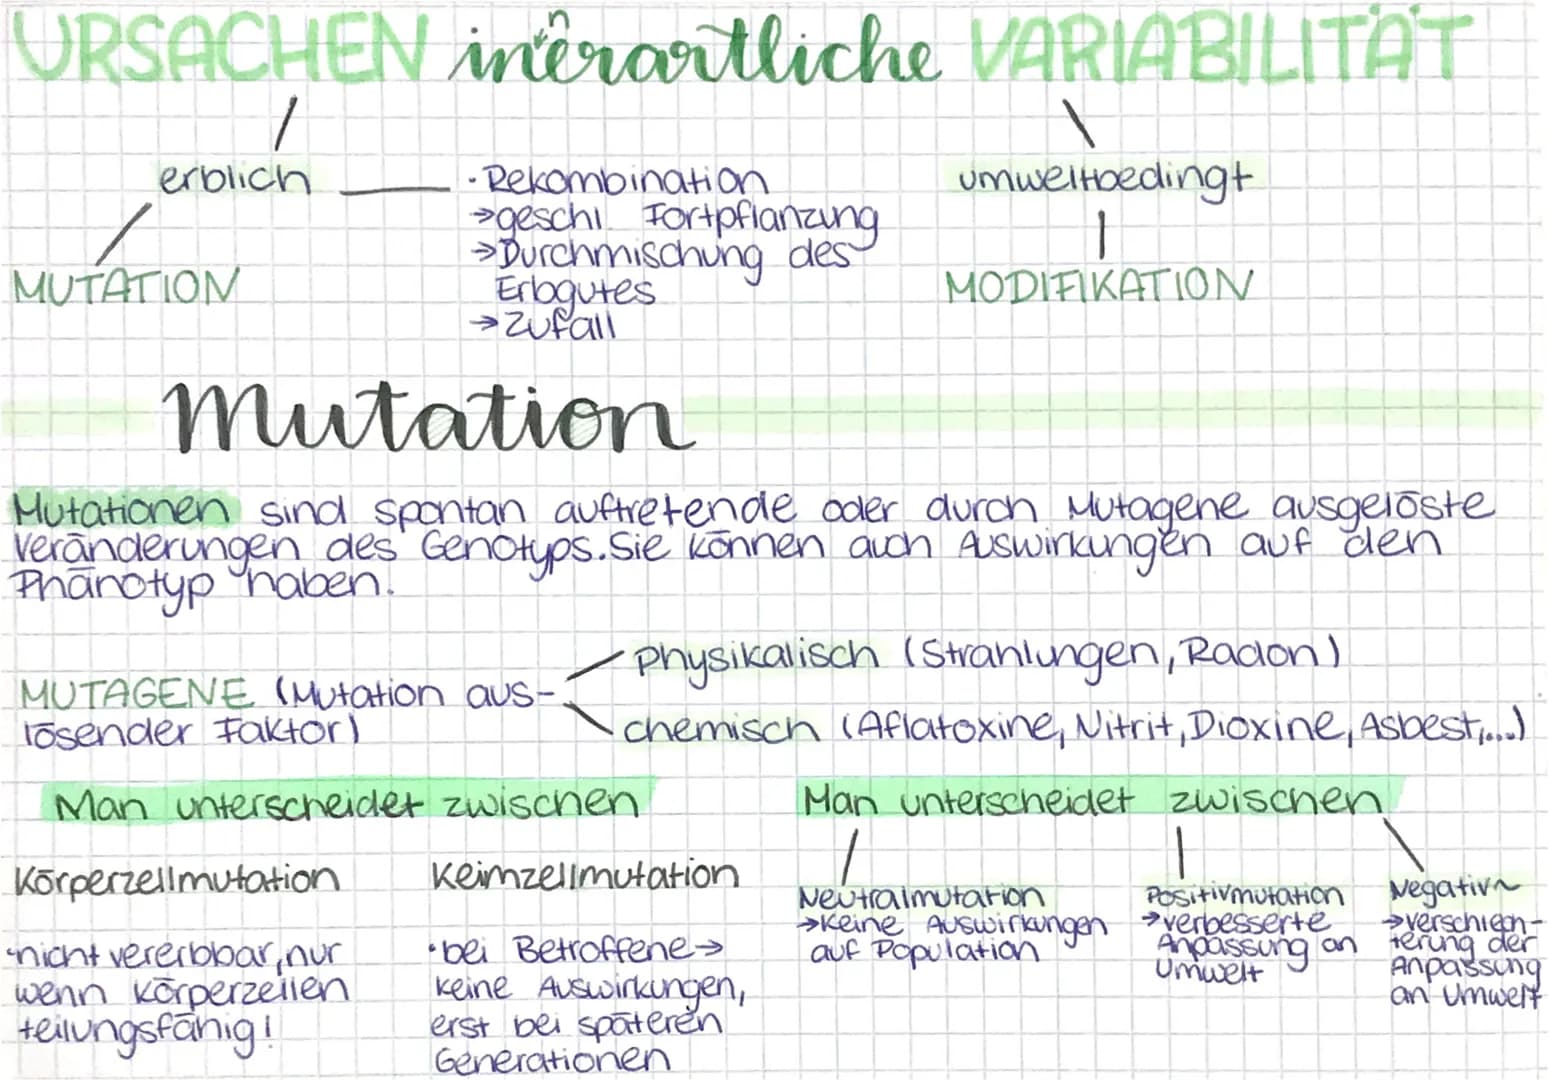 URSACHEN innerartliche VARIABILITÄT
erblich
· Rekombination
→geschl. Fortpflanzung
→Durchmischung des
Erbgutes
→Zufall
umweltbedingt
MUTATION
MODIFIKATION
Mutation
Mutationen sind spontan auftretende oder durch Mutagene ausgelöste
Veränderungen des Genotyps. Sie können auch Auswirkungen auf den
Phänotyp haben.
MUTAGENE (Mutation aus-
lösender Faktor)
physikalisch (Strahlungen, Radon)
chemisch (Aflatoxine, Nitrit, Dioxine, Asbest,...)
Man unterscheidet zwischen
Körperzellmutation
·nicht vererbbar, nur
wenn Körperzellen
teilungsfähig!
Keimzellmutation
·bei Betroffene→
keine Auswirkungen,
erst bei späteren
Generationen
Man unterscheidet zwischen
Neutralmutation
→keine Auswirkungen
auf Population
Positivmutation
→verbesserte
Anpassung an
Umwelt
Negativ~
→verschlech-
terung der
Anpassung
an Umwelt